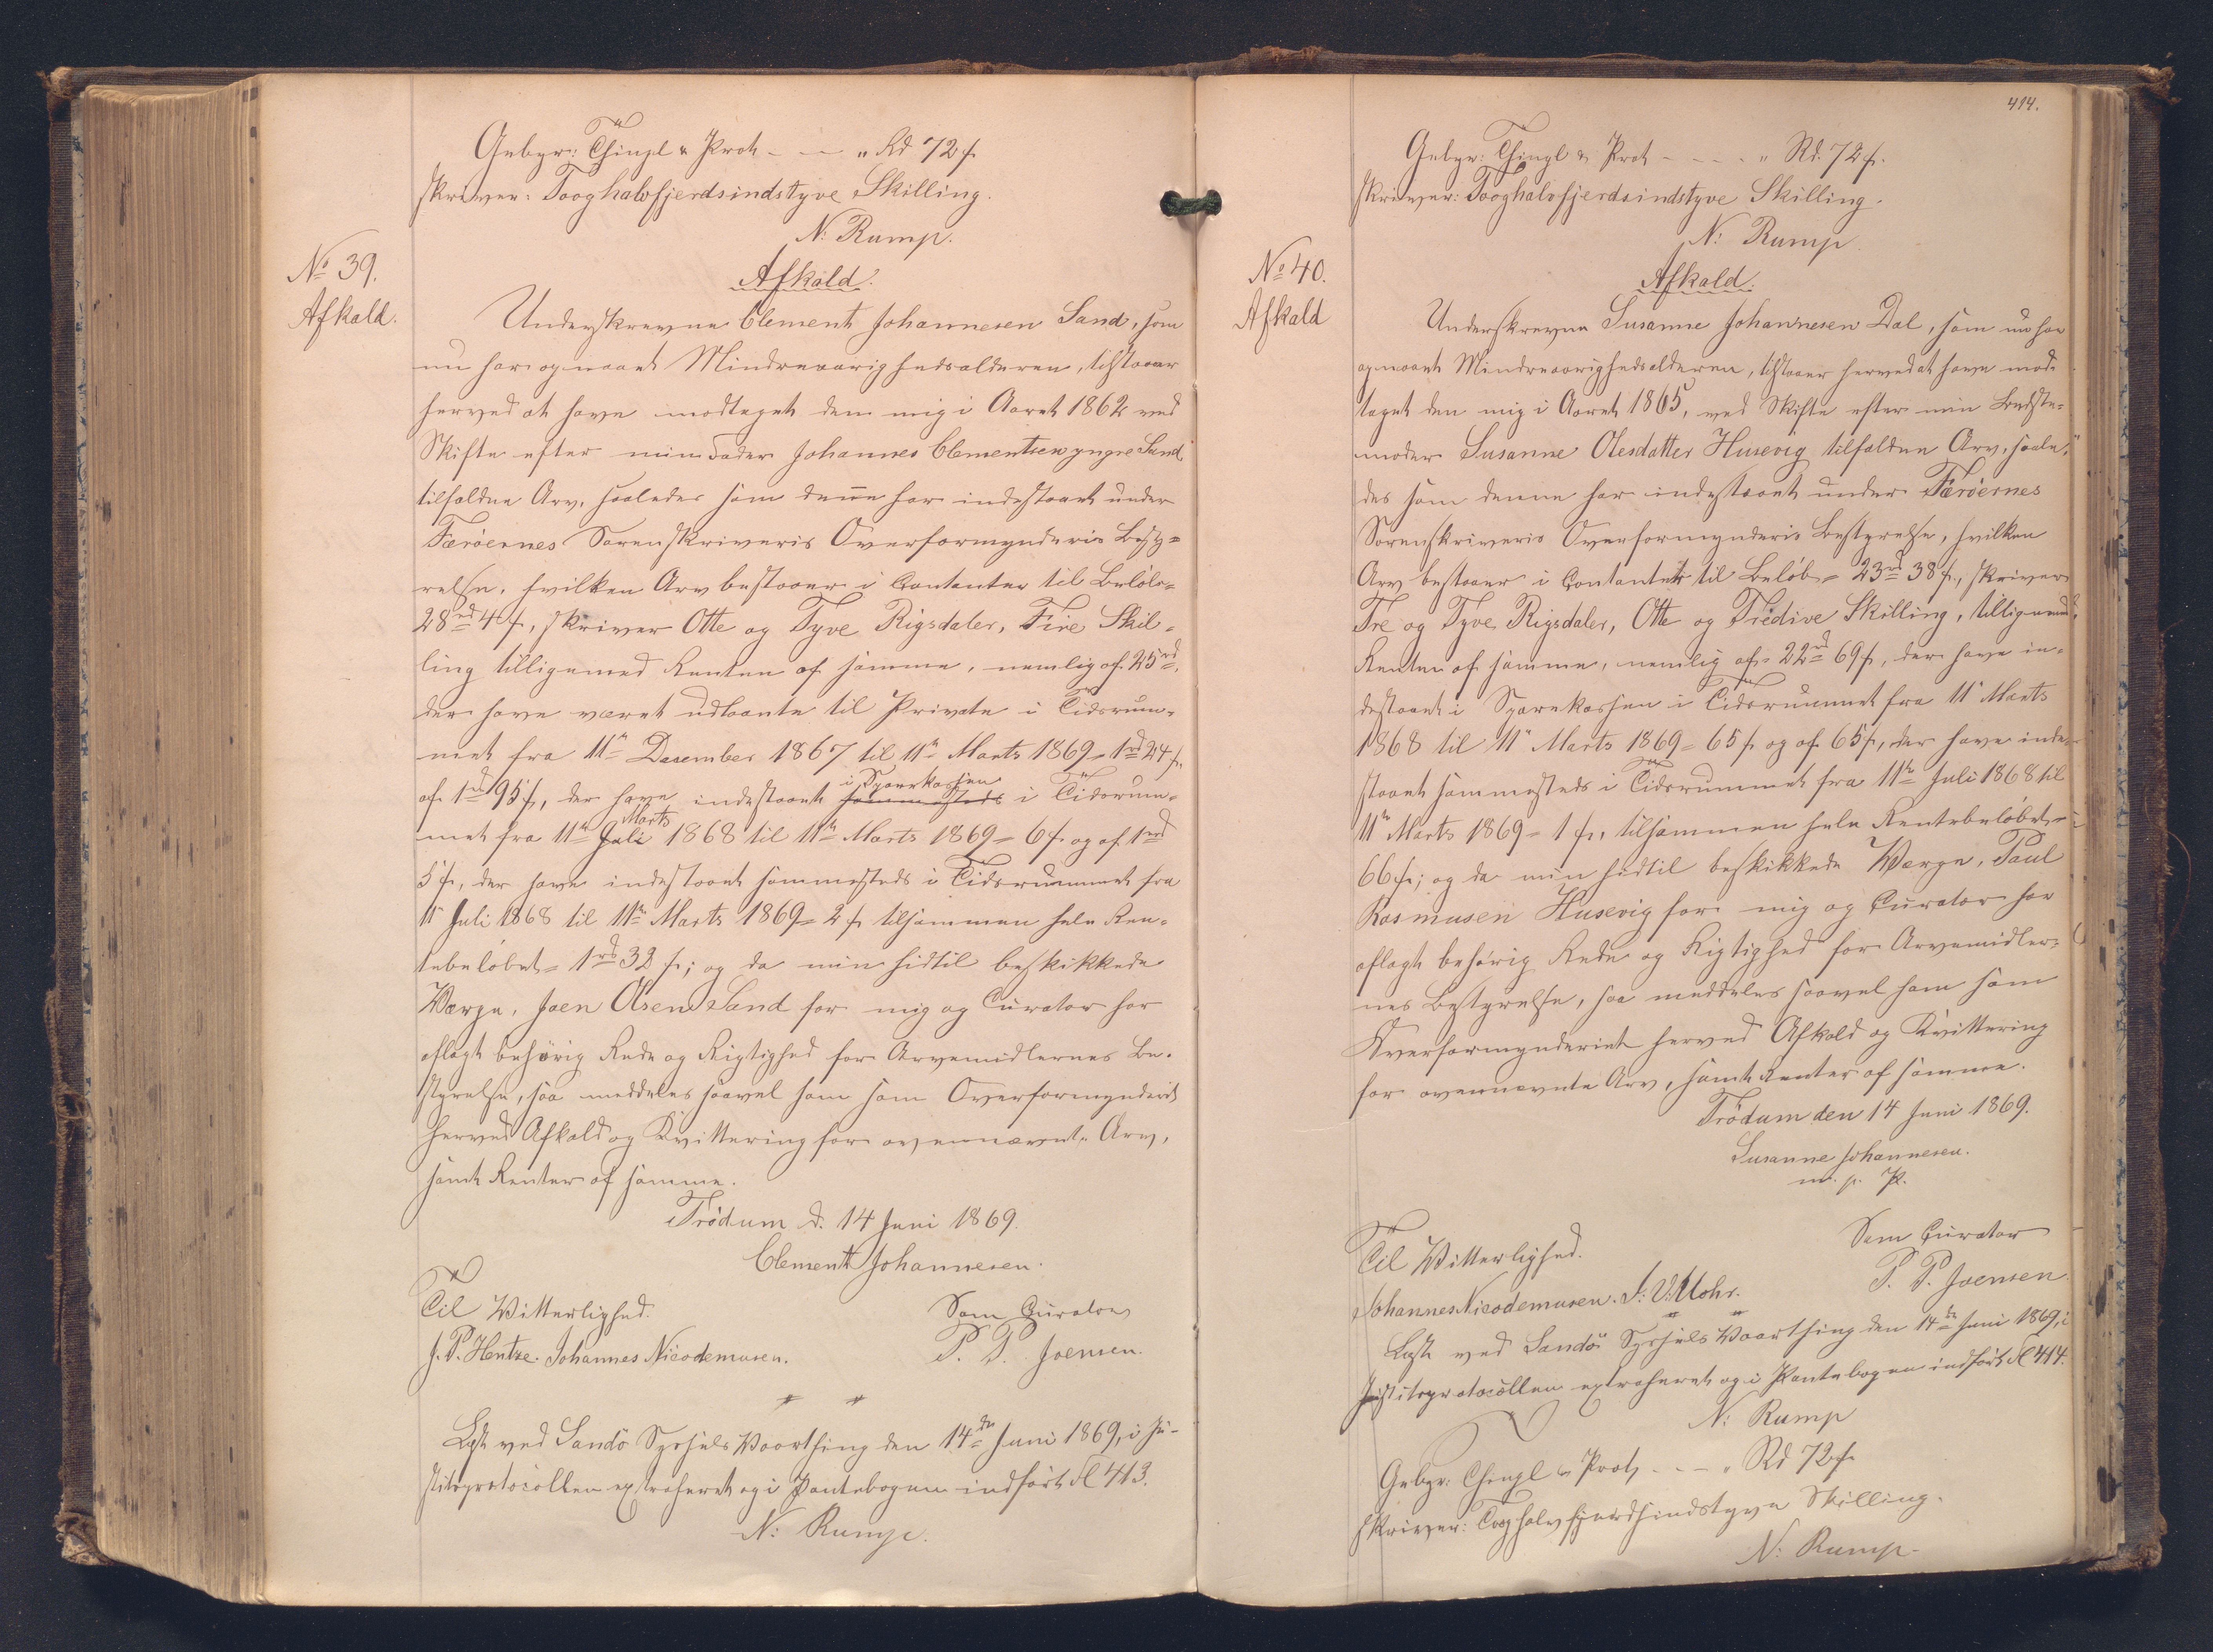 Gebyr: Thingl & Prot - - - " Rd 72 ſ
skriver: Tooghalvfjerdsindstyve Skilling.
N: Rump.
No 39.
Afkald.
Afkald.
Underskrevne Clement Johannesen Sand, som
nu har opnaaet Mindreaarighedsalderen, tilstaaer
herved at have modtaget den mig i Aaret 1862 ved
Skifte efter min Fader Johannes Clementsen yngre Sand
tilfaldne Arv, saaledes som denne har indestaaet under
Færöernes Sorenskriveris Overformynderis Besty=
relse, hvilken Arv bestaaer i Contanter til Beløb=
28rd 4 ſ, skriver Otte og Tyve Rigsdaler, Fire Skil=
ling tilligemed Renten af samme, nemlig af 25rd,
der have været udlaante til Private i Tidsrum=
met fra 11te December 1867 til 11te Marts 1869 = 1rd 24 ſ,
af 1rd 95 ſ, der have indestaaet sammesteds i Sparekassen i Tidsrum=
met fra 11te Juli Marts 1868 til 11te Marts 1869 = 6 ſ og af 1rd
5 ſ, der have indestaaet sammesteds i Tidsrummet fra
11 Juli 1868 til 11te Marts 1869 = 2 ſ tilsammen hele Ren=
tebeløbet = 1rd 32 ſ; og da min hidtil beskikkede
Værge, Joen Olsen Sand for mig og Curator har
aflagt behørig Rede og Rigtighed for Arvemidlernes Be=
styrelse, saa meddeles saavel ham som Overformynderiet
herved Afkald og Kvittering for ovennævnte Arv,
samt Renter af samme.
Trödum d. 14 Juni 1869.
Clement Johannesen.
Til Vitterlighed.
Som Curator
J. P. Hentze. Johannes Nicodemusen.
P. P. Joensen.
Læst ved Sandö Syssels Vaarthing den 14de Juni 1869, i Ju=
stitsprotocollen extraheret og i Pantebogen indført Fol 413.
N: Rump.
414.
Gebyr: Thingl & Prot - - - - " Rd. 72 ſ.
skriver: Tooghalvfjerdsindstyve Skilling.
N: Rump.
No 40.
Afkald
Afkald.
Underskrevne Susanne Johannesen Dal, som nu har
opnaaet Mindreaarighedsalderen, tilstaaer herved at have mod=
taget den mig i Aaret 1865, ved Skifte efter min Bedste=
moder Susanne Olesdatter Husevig tilfaldne Arv, saale=
des som denne har indestaaet under Færöernes
Sorenskriveris Overformynderis Bestyrelse, hvilken
Arv bestaaer i Contanter til Beløb = 23rd 38 ſ, skriver
Tre og Tyve Rigsdaler, Otte og Tredive Skilling, tilligemed
Renten af samme, nemlig af 22rd 69 ſ, der have in=
destaaet i Sparekassen i Tidsrummet fra 11te Marts
1868 til 11te Marts 1869 = 65 ſ og af 65 ſ, der have inde=
staaet sammesteds i Tidsrummet fra 11te Juli 1868 til
11te Marts 1869 = 1 ſ, tilsammen hele Rentebeløbet =
66 ſ; og da min hidtil beskikkede Værge, Paul
Rasmusen Husevig for mig og Curator har
aflagt behørig Rede og Rigtighed for Arvemidler=
nes Bestyrelse, saa meddeles saavel ham som
Overformynderiet herved Afkald og Kvittering
for ovennævnte Arv, samt Renter af samme.
Trödum den 14 Juni 1869.
Susanne Johannesen.
m. p. P.
Til Vitterlighed.
Som Curator
Johannes Nicodemusen. J: V: Mohr.
P. P. Joensen
Læst ved Sandö Syssels Vaarthing den 14de Juni 1869, i
Justitsprotocollen extraheret og i Pantebogen indført Fol 414.
N: Rump
Gebyr: Thingl & Prot. - - - " Rd 72 ſ
skriver: Tooghalvfjerdsindstyve Skilling.
N: Rump.